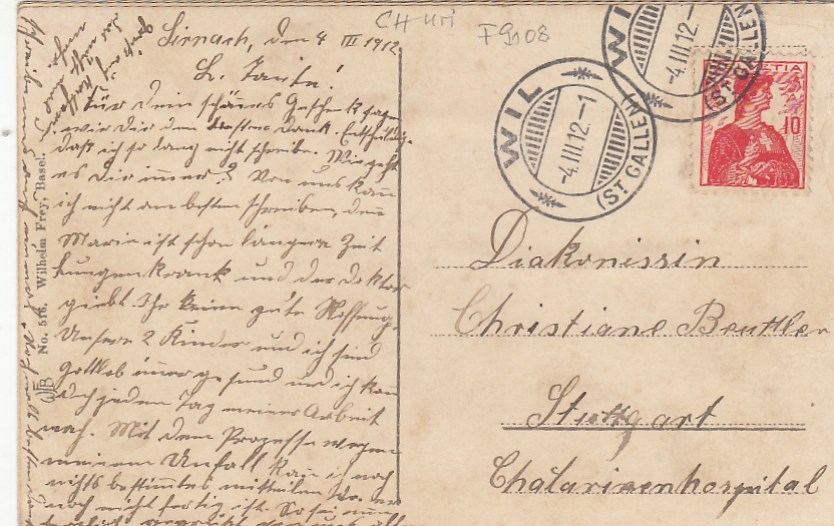 CH
F9108
Sirnach, den 4 III 1912
L. Tante!
Für dein schönes Geschenk sagen
wir dir den besten Dank. Entschuldig
daß ich so lang nicht schreibe. Wie geht
es Dir immer? Von uns kann
ich nicht am besten schreiben, den
Marie ist schon längere Zeit
Lungenkrank und der Doktor
giebt Ihr keine gute Hoffnung.
Unsere 2 Kinder und ich sind
gottlob immer gesund und ich kan
auch jeden Tag meiner Arbeit
nach. Mit dem Prozesse wegen
meinem Unfall kann ich noch
nichts bestimmtes mitteilen
noch nicht fertig ist. So sei nun
No. 516. Wilhelm Frey, Basel.
WIL
-4.III.12.-1
(ST. GALLEN)
WIL
-4.III.12.-
(ST. GALLEN)
HELVETIA
10
Diakonissin
Christiane Beuttler
Stuttgart
Chatarinenhospital